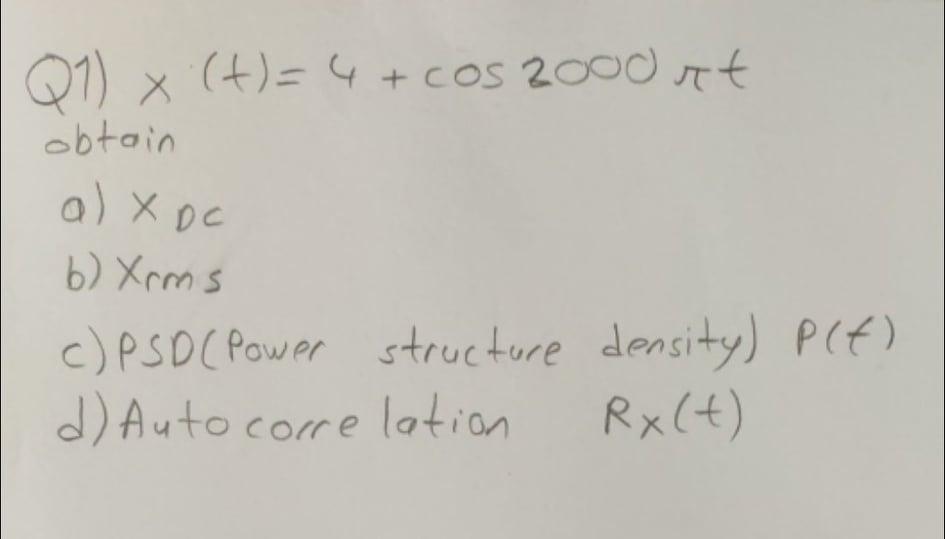 Q1) x (t) = 4 + cos 2000 πt
obtain
a) X DC
b) Xrms
c) PSD (Power structure density) P(f)
d) Autocorrelation Rx(t)